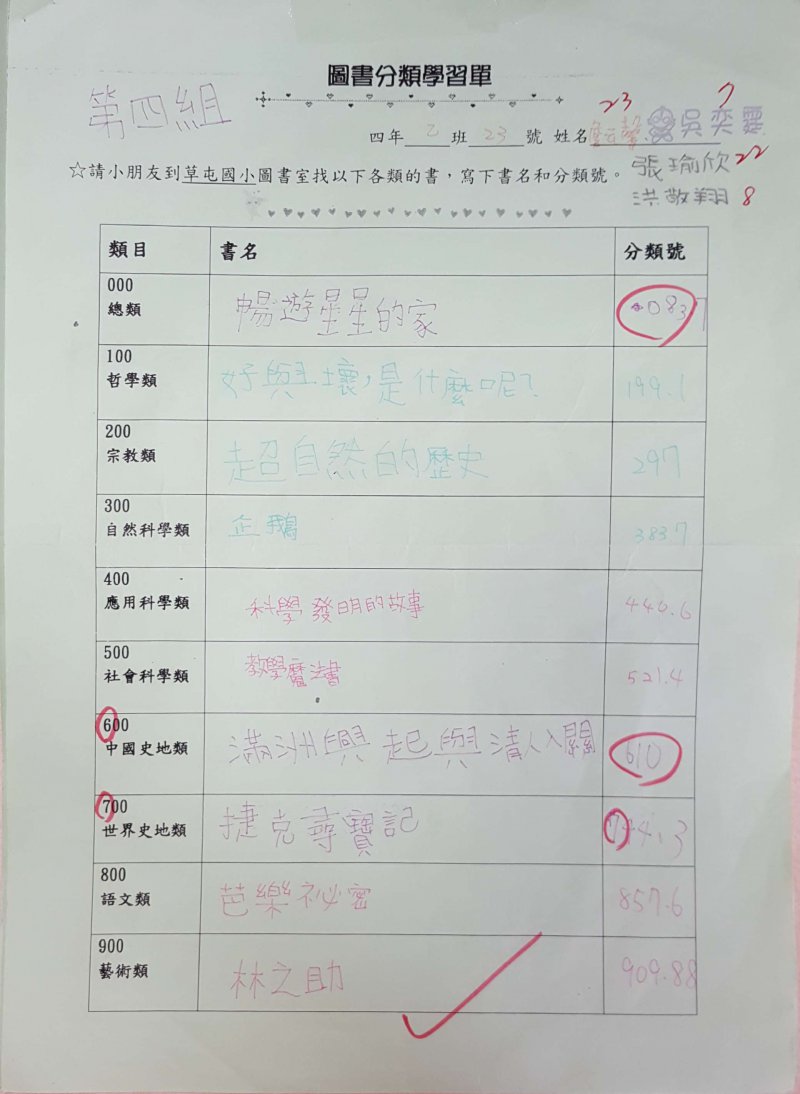 圖書分類學習單
第四組
23 7
四年乙班23號 姓名 吳奕霆
張瑜欣 22
☆請小朋友到草屯國小圖書室找以下各類的書，寫下書名和分類號。
洪敬翔 8
類目 書名 分類號
000
總類 暢遊星星的家 0837
100
哲學類 好與壞，是什麼呢？ 199.1
200
宗教類 超自然的歷史 297
300
自然科學類 企鵝 383.7
400
應用科學類 科學發明的故事 440.6
500
社會科學類 教學魔法書 521.4
600
中國史地類 滿洲興起與清人入關 610
700
世界史地類 捷克尋寶記 744.3
800
語文類 芭樂祕密 857.6
900
藝術類 林之助 909.88